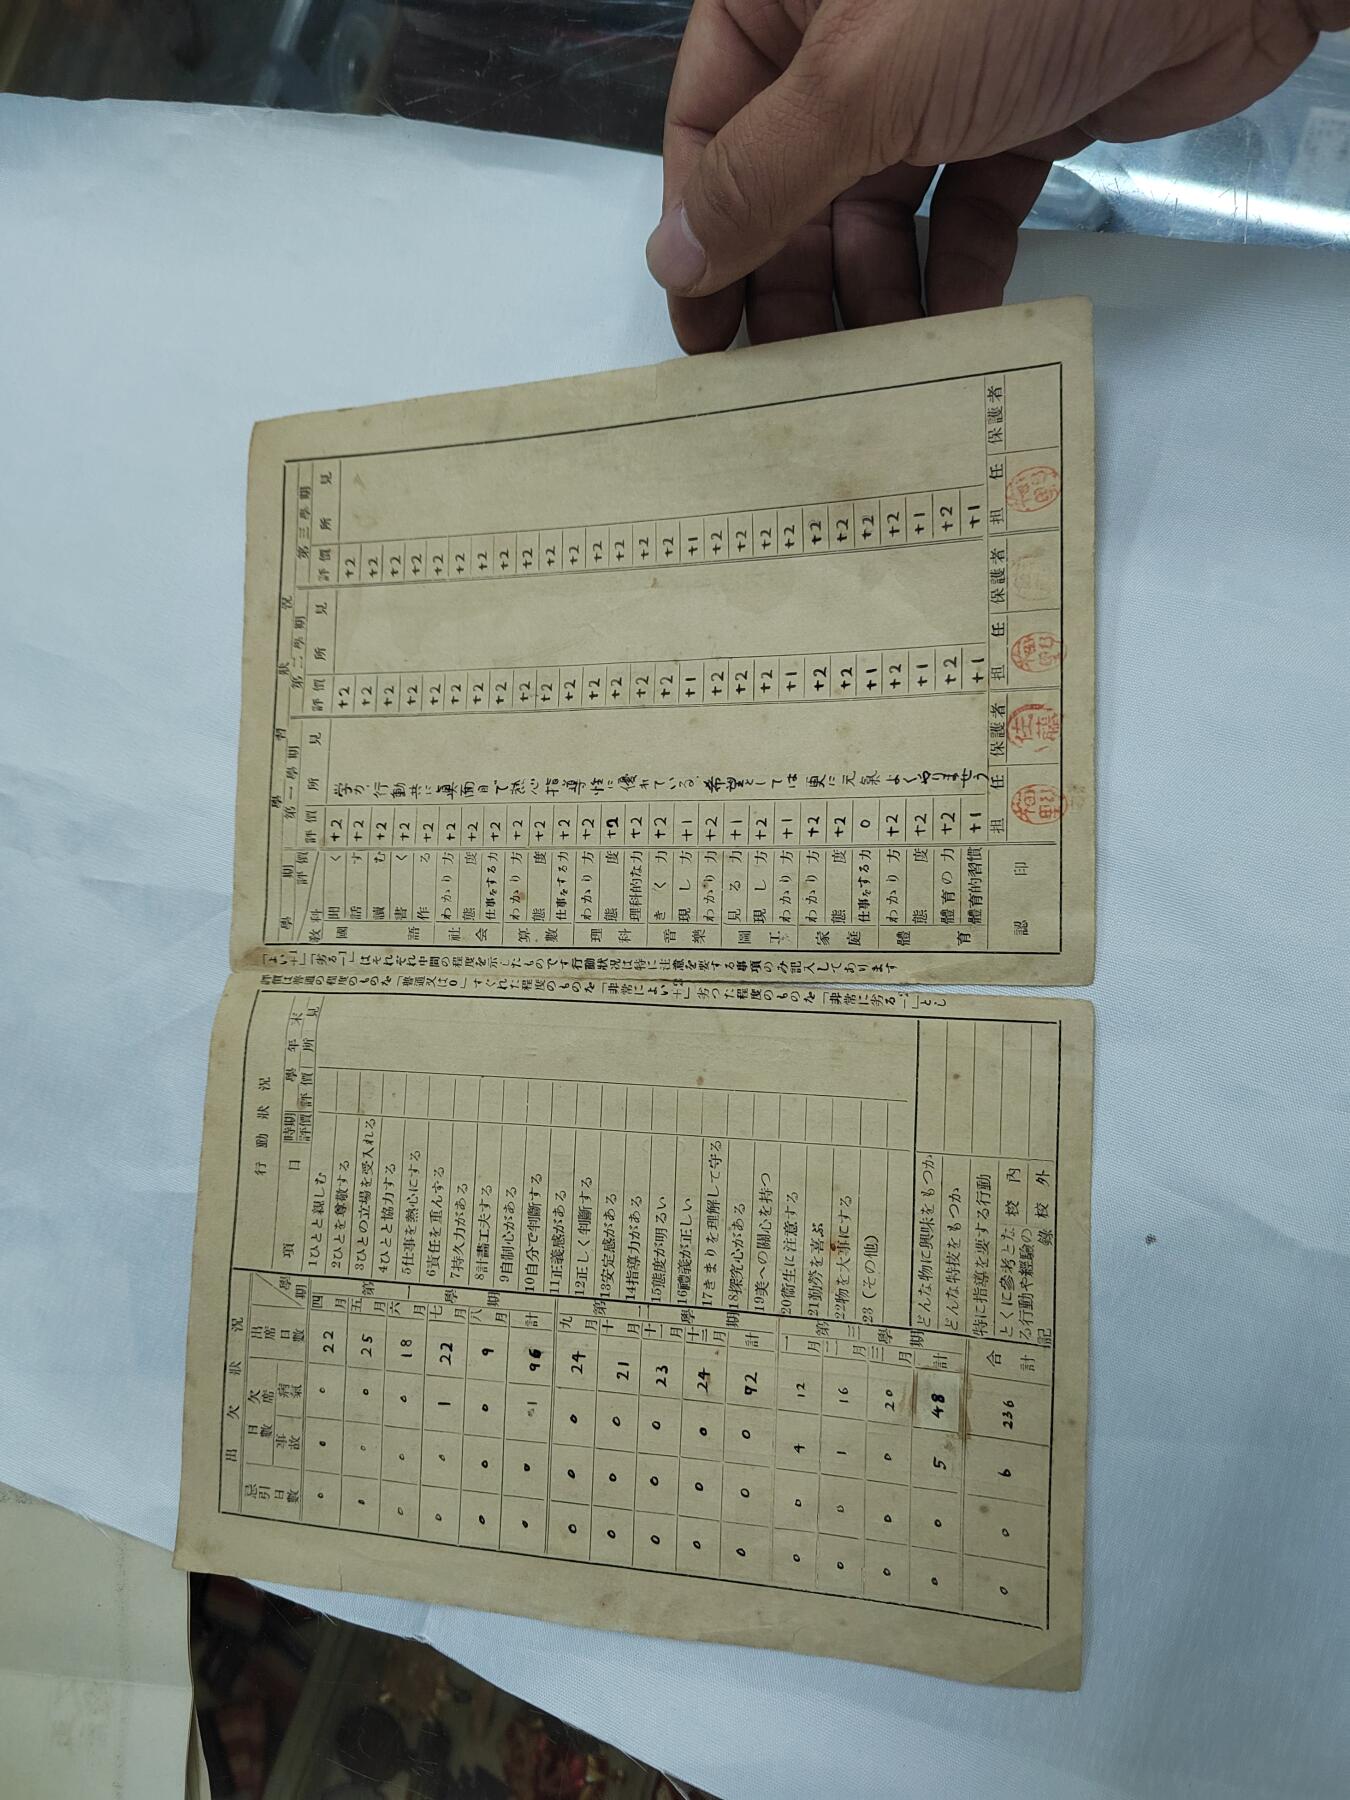 學習狀況
學期
評價
教科
第一學期
評價
所見
第二學期
評價
所見
第三學期
評價
所見
國語
聞く +2 +2 +2
話す +2 +2 +2
讀む +2 +2 +2
書く +2 +2 +2
作る +2 +2 +2
社会
わかり方 +2 +2 +2
態度 +2 +2 +2
仕事をする力 +2 +2 +2
算數
わかり方 +2 +2 +2
態度 +2 +2 +2
仕事をする力 +2 +2 +2
理科
わかり方 +2 +2 +2
態度 +2 +2 +2
理科的な力 +2 +2 +2
音樂
きく力 +2 +2 +2
現し方 +1 +1 +1
わかり方 +2 +2 +2
圖工
見る力 +1 +2 +2
現し方 +2 +2 +2
わかり方 +1 +1 +2
家庭
わかり方 +2 +2 +2
態度 +2 +2 +2
仕事をする力 0 +1 +2
體育
わかり方 +2 +2 +2
態度 +2 +1 +1
體育の力 +2 +2 +2
體育的習慣 +1 +1 +1
学力行動共に眞面目で熱心指導性に優れている。希望としては更に元氣よくやりませう
認印
担任 保護者 担任 保護者 担任 保護者
佐藤
評價は普通の程度のものを「普通又は0」すぐれた程度のものを「非常によい+2」劣つた程度のものを「非常に劣る-2」とし
「よい+1」「劣る-1」はそれぞれ中間の程度を示したものです行動狀況は特に注意を要する事項のみ記入してあります
行動狀況
項目
時期
評價
學年末
評價
所見
1ひとと親しむ
2ひとを尊敬する
3ひとの立場を受入れる
4ひとと協力する
5仕事を熱心にする
6責任を重んずる
7持久力がある
8計畵工夫する
9自制心がある
10自分で判斷する
11正義感がある
12正しく判斷する
13安定感がある
14指導力がある
15態度が明るい
16禮義が正しい
17きまりを理解して守る
18探究心がある
19美への關心を持つ
20衞生に注意する
21勤勞を喜ぶ
22物を大事にする
23(その他)
どんな物に興味をもつか
どんな特技をもつか
特に指導を要する行動
とくに參考とな る行動や經驗の記錄
校内
校外
出欠狀況
學期
出席日數
欠席日數
病氣
事故
忌引日數
第一學期
四月 22 0 0 0
五月 25 0 0 0
六月 18 0 0 0
七月 22 1 0 0
八月 9 0 0 0
計 96 1 0 0
第二學期
九月 24 0 0 0
十月 21 0 0 0
十一月 23 0 0 0
十二月 24 0 0 0
計 92 0 0 0
第三學期
一月 12 4 0 0
二月 16 1 0 0
三月 20 0 0 0
計 48 5 0 0
合計 236 6 0 0